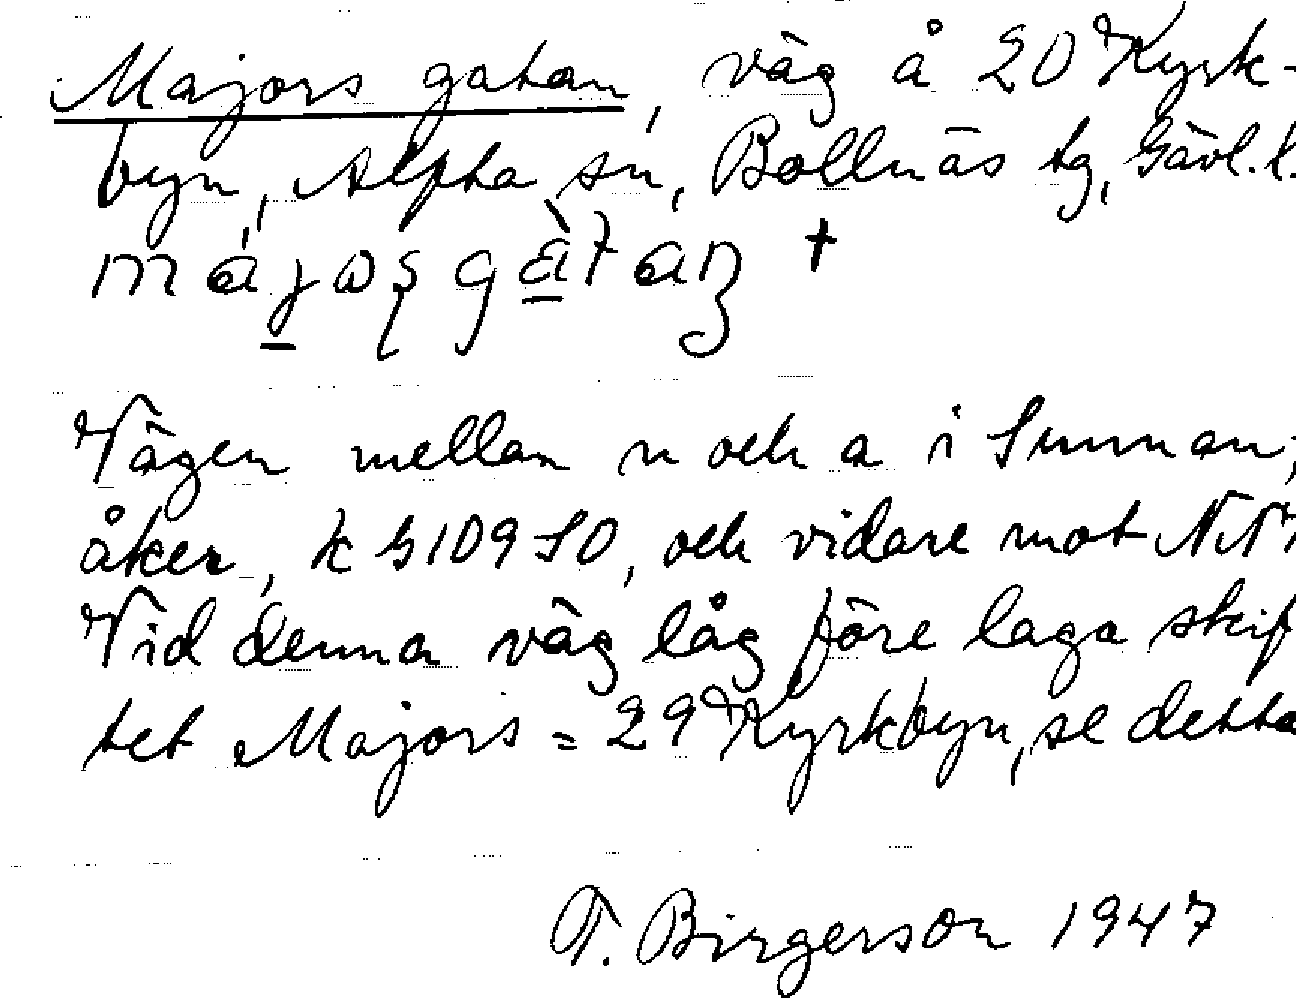 Majors gatan, väg å 20 Kyrk-
byn, Alfta sn, Bollnäs tg, Gävl. l.
Vägen mellan n och a i Sunnan,
åker, k G109 SO, och vidare mot NN
Vid denna väg låg före laga skif
tet Majors = 29 Kyrkbyn, se detta
T. Birgerson 1947